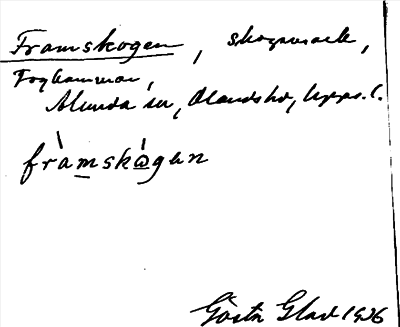 Framskogen, skogsmark,
Foghammar,
Alunda sn, Olandshd, Upps. l.
fràmskògen
Gösta Glad 1936